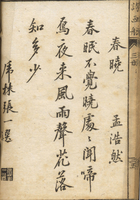 春曉
孟浩然
春眠不覺曉處〻聞啼
鳥夜来風雨聲花落
知多少
虎林張一選